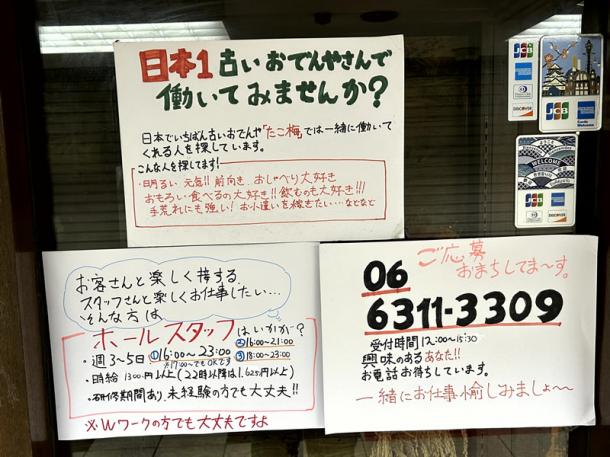 日本1 古いおでんやさんで
働いてみませんか?
日本でいちばん古いおでんや「たこ梅」では一緒に働いて
くれる人を探しています。
こんな人を探してます!
・明るい 元気!! 前向き おしゃべり大好き
おもろい 食べるの大好き!! 飲むのも大好き!!!
手荒れにも強い! お小遣いを稼ぎたい…などなど
お客さんと楽しく接する、
スタッフさんと楽しくお仕事したい…
そんな方は
ホールスタッフはいかが?
・週3~5日 ①16:00~23:00 ②16:00~21:00
※17:00~でもOKです ③18:00~23:00
・時給 1300円以上(22時以降は1,625円以上)
・研修期間あり、未経験の方でも大丈夫!!
※Wワークの方でも大丈夫ですよ
ご応募
おまちしてまーす。
06
6311-3309
受付時間12:00~15:30
興味のあるあなた!!
お電話お待ちしています。
一緒にお仕事愉しみましょ~
JCB
AMERICAN EXPRESS
Diners Club
DISCOVER
JCB
WELCOME
JCB